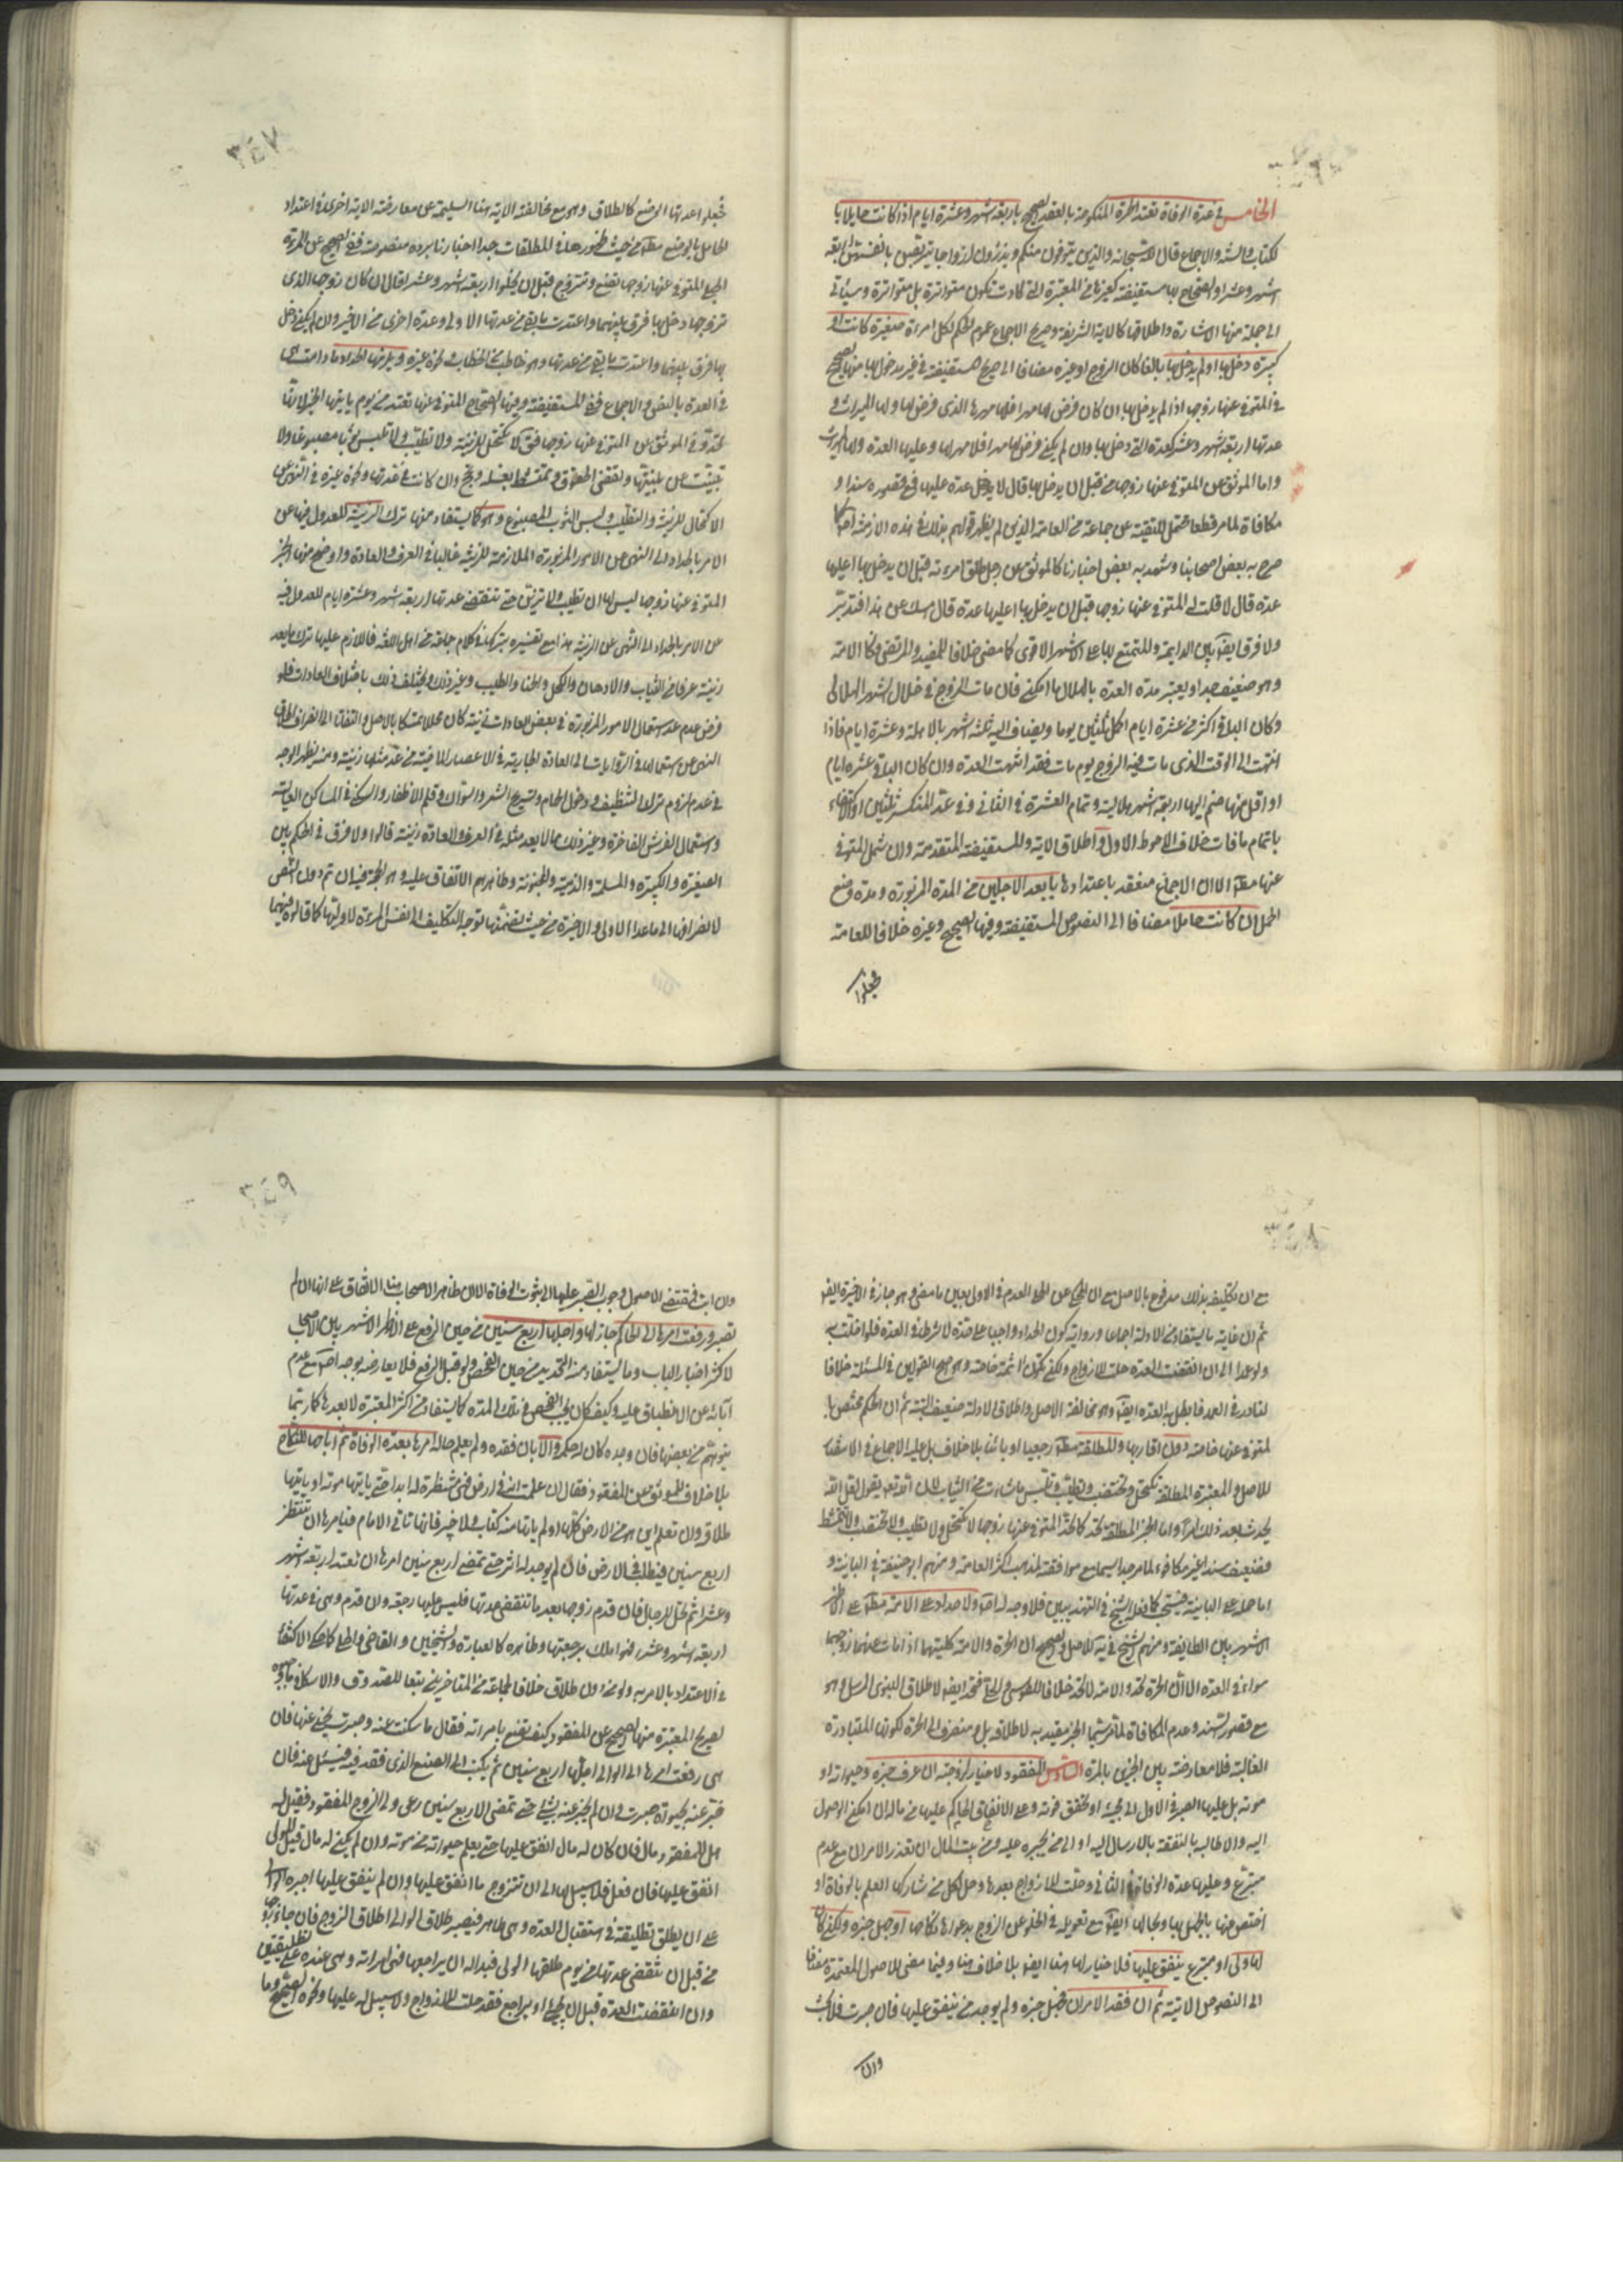 الخامس في عدة الوفاة تعتد الحرة المنكوحة بالعقد الصحيح باربعة اشهر وعشرة ايام اذا كانت حايلا بالكتاب والسنة والاجماع قال الله سبحانه والذين يتوفون منكم ويذرون ازواجا يتربصن بانفسهن اربعة
اشهر وعشرا والصحاح بها مستفيضة كغيرها من المعتبرة التي كادت تكون متواترة بل متواترة وسيأتي
الى جملة منها الاشارة واطلاقها كالاية الشريفة وصريح الاجماع عموم الحكم لكل امرءة صغيرة كانت او
كبيرة دخل بها او لم يدخل بها بالغا كان الزوج او غيره مضافا الى صحاح مستفيضة في غير مدخول بها منها الصحيح
في المتوفى عنها زوجها اذا لم يدخل بها ان كان فرض لها مهرا فلها مهرها الذي فرض لها ولها الميراث و
عدتها اربعة اشهر وعشر كعدة التي دخل بها وان لم يكن فرض لها مهرا فلا مهر لها وعليها العدة ولها الميراث
واما الموثق عن المتوفى عنها زوجها من قبل ان يدخل بها قال لا عدة عليها فمع قصوره سندا و
مكافاة لما مر قطعا محتمل للتقية عن جماعة من العامة الذين لم يظهر قولهم بذلك في هذه الازمنة كما
صرح به بعض اصحابنا وشهد به بعض اخبارنا كالموثق عن رجل طلق امرءته قبل ان يدخل بها اعليها
عدة قال لا قلت له المتوفى عنها زوجها قبل ان يدخل بها اعليها عدة قال امسك عن هذا فتدبر
ولا فرق ايضا بين الدايمة والمتمتع بها على الاشهر الاقوى كما مضى خلافا للمفيد والمرتضى فكالامة
وهو ضعيف جدا ويعتبر مدة العدة بالهلال ما امكن فان مات الزوج في خلال الشهر الهلالى
وكان الباقي اكثر من عشرة ايام اكمل ثلثين يوما ويضاف اليه ثلثة اشهر بالاهلة وعشرة ايام فاذا
انتهت الى الوقت الذي مات فيه الزوج يوم مات فقد انتهت العدة وان كان الباقي عشرة ايام
او اقل منها ضم اليها اربعة اشهر هلالية وتمام العشرة في الثاني وفي عد المنكسر ثلثين او الاكتفاء
باتمام ما فات خلاف الاحوط الاول واطلاق الاية والمستفيضة المتقدمة وان شمل المتوفى
عنها مط الا ان الاجماع منعقد باعتدادها بابعد الاجلين من المدة المزبورة ومدة وضع
الحمل ان كانت حاملا مضافا الى النصوص المستفيضة وفيها الصحيح وغيره خلافا للعامة
فجعلوا
فجعلوا عدتها الوضع كالطلاق وهو مع مخالفته الاية هنا السليمة عن معارضة الاية الاخرى في اعتداد
الحامل بالوضع مط من حيث ظهورها في المطلقات جدا اخبارنا برده منصوصة ففي الصحيح عن المرءة
الحبلى المتوفى عنها زوجها تضع وتتزوج قبل ان يخلو اربعة اشهر وعشرا قال ان كان زوجها الذي
تزوجها دخل بها فرق بينهما واعتدت ما بقي من عدتها الاولى وعدة اخرى من الاخير وان لم يكن دخل
بها فرق بينهما واعتدت ما بقي من عدتها وهو خاطب من الخطاب ونحوه غيره ويلزمها الحداد ما دامت
في العدة بالنص والاجماع ففي المستفيضة ومنها الصحاح المتوفى عنها تعتد من يوم ياتيها الخبر لانها
تحد وفي الموثق عن المتوفى عنها زوجها فقال لا تكتحل للزينة ولا تطيب ولا تلبس ثوبا مصبوغا ولا
تبيت عن بيتها وتقضي الحقوق وتمتشط بغسلة وتحج وان كانت في عدتها ونحوه غيره في النهي عن
الاكتحال للزينة والتطيب ولبس الثوب المصبوغ وهو كما يستفاد منها ترك الزينة للعدول فيها عن
الامر بالحداد الى النهي عن الامور المزبورة الملازمة للزينة غالبا في العرف والعادة واوضح منها الخبر
المتوفى عنها زوجها ليس لها ان تطيب ولا تزين حتى تنقضي عدتها اربعة اشهر وعشرة ايام للعدول فيه
عن الامر بالحداد الى النهي عن الزينة هذا مع تفسيره بتركها في كلام جماعة من اهل اللغة فاللازم عليها ترك ما يعد
زينة عرفا من الثياب والادهان والكحل والحنا والطيب وغير ذلك ويختلف ذلك باختلاف العادات فلو
فرض عدم عد استعمال الامور المزبورة في بعض العادات زينة كان محللا تمسكا بالاصل والتفاتا الى انصراف اطلاق
النهي عن استعمالها في الروايات الى العادة الجارية في الاعصار الماضية من عد مثلها زينة ومنه يظهر الوجه
في عدم لزوم ترك التنظيف ودخول الحمام وتسريح الشعر والسواك وقلم الاظفار والسكنى في المساكن العالية
واستعمال الفرش الفاخرة وغير ذلك مما لا يعد مثله في العرف والعادة زينة قالوا ولا فرق في الحكم بين
الصغيرة والكبيرة والمسلمة والذمية والمجنونة وظاهرهم الاتفاق عليه وهو الحجة فيه ان تم دون النصوص
لانصرافها الى ما عدا الاولى والاخيرة من حيث تضمنها توجه التكليف الى نفس المرءة لا وليها كما قالوه فيهما
مع ان تكليفه بذلك مدفوع بالاصل مع ان المحكي عن الحلي العدم في الاولى بعين ما مضى وهو جاز في الاخيرة ايضا
ثم ان غاية ما يستفاد من الادلة اجماعا ورواية كون الحداد واجبا على حدة لا شرطا في العدة فلو اخلت به
ولو عمدا الى ان انقضت العدة حلت للازواج ولكن تكون اثمة خاصة وهو اصح القولين في المسئلة خلافا
لنادر في العمد فابطل به العدة ايضا وهو مع مخالفته الاصل واطلاق الادلة ضعيف البتة ثم ان الحكم مختص بالمتوفى عنها خاصة دون اقاربها والمطلقة مط رجعيا او باينا بلا خلاف بل عليه الاجماع في الاستبصار
للاصل والمعتبرة المطلقة تكتحل وتختضب وتطيب وتلبس ما شاءت من الثياب لان الله تعالى يقول لعل الله
يحدث بعد ذلك امرا واما الخبر المطلقة تحد كما تحد المتوفى عنها زوجها لا تكتحل ولا تطيب ولا تختضب ولا تمتشط
فضعيف سندا غير مكافء لما مر جدا سيما مع موافقته لمذهب اكثر العامة ومنهم ابو حنيفة في الباينة و
اما حمله على الباينة فيستحب كما فعله الشيخ في التهذيبين فلا وجه له ولا حداد على الامة مط على الاظهر
الاشهر بين الطايفة ومنهم الشيخ في يه للاصل والصحيح ان الحرة والامة كلتيهما اذا مات عنهما زوجهما
سواء في العدة الا ان الحرة تحد والامة لا تحد خلافا للطوسي والحلي فتحد ايضا لاطلاق النبوي المرسل وهو
مع قصور السند وعدم المكافاة لما مر سيما الخبر مقيد به لاطلاقه بل ومنصرف الى الحرة لكونها المتبادرة
الغالبة فلا معارضة بين الخبرين بالمرة السادس المفقود لا خيار لزوجته ان عرف خبره وحيوته او
موته بل عليها الصبر في الاول الى مجيئه او تحقق فوته وعلى الانفاق الحاكم عليها من ماله ان امكن الوصول
اليه والا طالبه بالنفقة بالارسال اليه او الى من يجبره عليه ومن بيت المال ان تعذر الامران مع عدم
متبرع وعليها عدة الوفاة في الثاني وحلت للازواج بعدها وحل لكل من شاركها العلم بالوفاة او
اختص منها بالجهل بها وبحالها ايضا مع تعويله في الخلو عن الزوج بدعواها نكاحها او جهل خبره ولكن كان
لها ولى او متبرع ينفق عليها فلا خيار لها هنا ايضا بلا خلاف هنا وفيما مضى للاصول المعتمدة مضافا
الى النصوص الاتية ثم ان فقد الامران فجهل خبره ولم يوجد من ينفق عليها فان صبرت فلا بحث
وان
وان ابت فمقتضى الاصول وجوب الصبر عليها الى ثبوت الوفاة الا ان ظاهر الاصحاب هنا الاتفاق على انها ان لم
تصبر ورفعت امرها الى الحاكم جاز لها واجلها اربع سنين من حين الرفع على الاظهر الاشهر بين الاصحاب
لاكثر اخبار الباب وما يستفاد منه التحديد من حين الفحص ولو قبل الرفع فلا يعارضه بوجه مع عدم
ابائه عن الانطباق عليه وكيف كان يجب الفحص في تلك المدة كما يستفاد من اكثر المعتبرة لا بعدها كما ربما
يتوهم من بعضها فان وجده كان له حكمه والا بان فقده ولم يعلم حاله امرها بعدة الوفاة ثم اباحها للنكاح
بلا خلاف للموثق عن المفقود فقال ان علمت انه في ارض فهي منتظرة له ابدا حتى ياتيها موته او ياتيها
طلاق وان لم تعلم اين هو من الارض كلها ولم ياتها منه كتاب ولا خبر فانها تاتي الامام فيامرها ان تنتظر
اربع سنين فيطلب في الارض فان لم يوجد له اثر حتى تمضي اربع سنين امرها ان تعتد اربعة اشهر
وعشرا ثم تحل للرجال فان قدم زوجها بعد ما تنقضي عدتها فليس له عليها رجعة وان قدم وهي في عدتها
اربعة اشهر وعشر فهو املك برجعتها وظاهره كالعبارة والشيخين والقاضي والحلي كما حكي الاكتفاء
في الاعتداد بالامر به ولو من دون طلاق خلافا لجماعة من المتاخرين تبعا للصدوق والاسكافي
لصريح المعتبرة منها الصحيح عن المفقود كيف تصنع بامراته فقال ما سكتت عنه وصبرت يخلى عنها فان
هي رفعت امرها الى الوالي اجلها اربع سنين ثم يكتب الى الصقع الذي فقد فيه فيسئل عنه فان
خبر عنه بحيوة صبرت وان لم يخبر عنه بشئ حتى تمضي الاربع سنين دعى ولي الزوج المفقود فقيل له
هل للمفقود مال فان كان له مال انفق عليها حتى يعلم حيوته من موته وان لم يكن له مال قيل للولي
انفق عليها فان فعل فلا سبيل لها الى ان تتزوج ما انفق عليها وان لم ينفق عليها اجبره الوالي
على ان يطلق تطليقة في استقبال العدة وهي طاهر فيصير طلاق الوالي طلاق الزوج فان جاء زوجها
من قبل ان تنقضي عدتها من يوم طلقها الولي فبدا له ان يراجعها فهي امراته وهي عنده على تطليقتين
وان انقضت العدة قبل ان يجئ او يراجع فقد حلت للازواج ولا سبيل له عليها ونحوه الصحيح